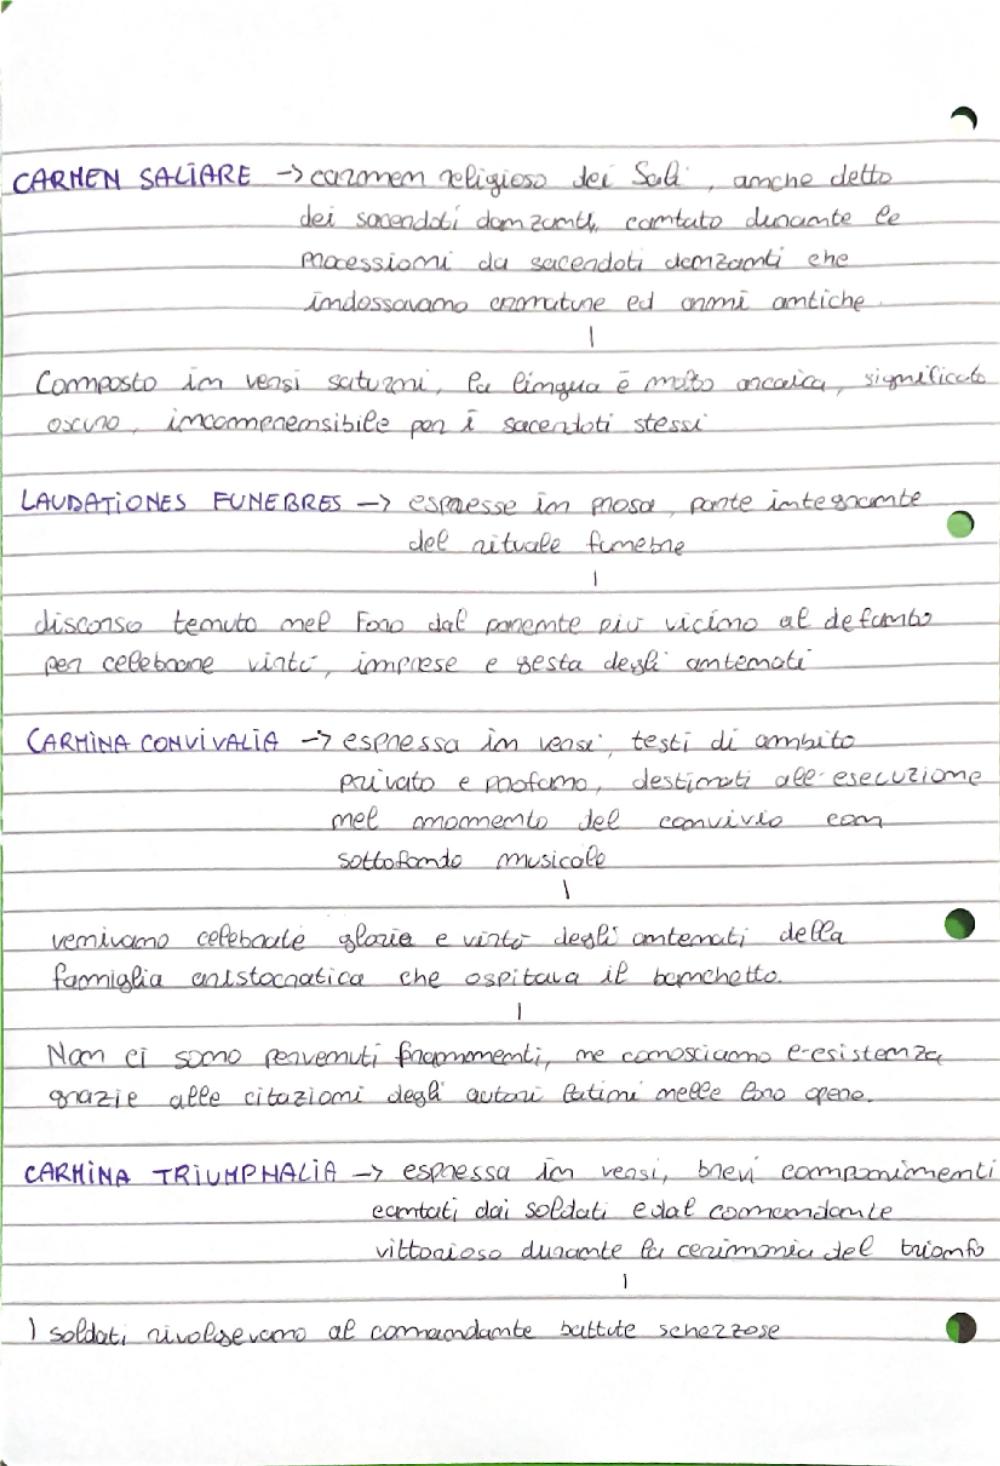 CARMEN SALIARE → carmen religioso dei Sali, anche detto
dei sacerdoti danzanti, cantato durante le
processioni da sacerdoti danzanti che
indossavano armature ed armi antiche
Composto in versi saturni, la lingua è molto arcaica, significato
oscuro, incomprensibile per i sacerdoti stessi
LAUDATIONES FUNEBRES → espresse in prosa, parte integrante
del rituale funebre
discorso tenuto nel Foro dal parente più vicino al defunto
per celebrare virtù, imprese e gesta degli antenati
CARMINA CONVIVALIA → espressa in versi, testi di ambito
privato e profano, destinati all'esecuzione
nel momento del convivio con
sottofondo musicale
venivano celebrate glorie e virtù degli antenati della
famiglia aristocratica che ospitava il banchetto.
Non ci sono pervenuti frammenti, ne conosciamo l'esistenza
grazie alle citazioni degli autori latini nelle loro opere.
CARMINA TRIUMPHALIA → espressa in versi, brevi componimenti
cantati dai soldati e dal comandante
vittorioso durante la cerimonia del trionfo
I soldati rivolgevano al comandante battute scherzose